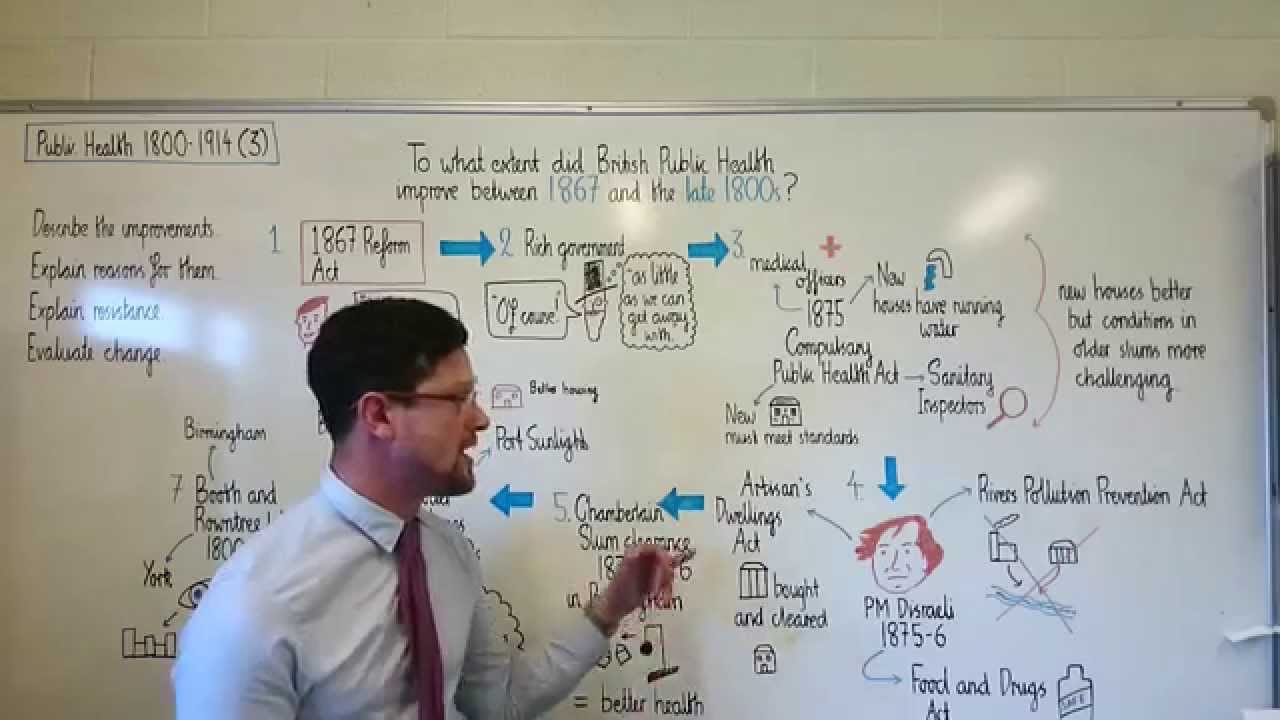 Public Health 1800-1914 (3)
To what extent did British Public Health
improve between 1867 and the late 1800s?
Describe the improvements.
Explain reasons for them.
Explain resistance.
Evaluate change.
1
1867 Reform
Act
2 Rich government
"Of couse"
"as little
as we can
get away
with.
3.
medical
officers
1875
Compulsary
Public Health Act
New
houses have running
water
Sanitary
Inspectors
New
must meet standards
new houses better
but conditions in
older slums more
challenging.
4.
PM Disraeli
1875-6
Rivers Pollution Prevention Act
Food and Drugs
Act
SAFE
Artisan's
Dwellings
Act
bought
and cleared
5. Chamberlain
Slum clearance
in
= better health
Better housing
Port Sunlight
7 Booth and
Rowntree
Birmingham
York